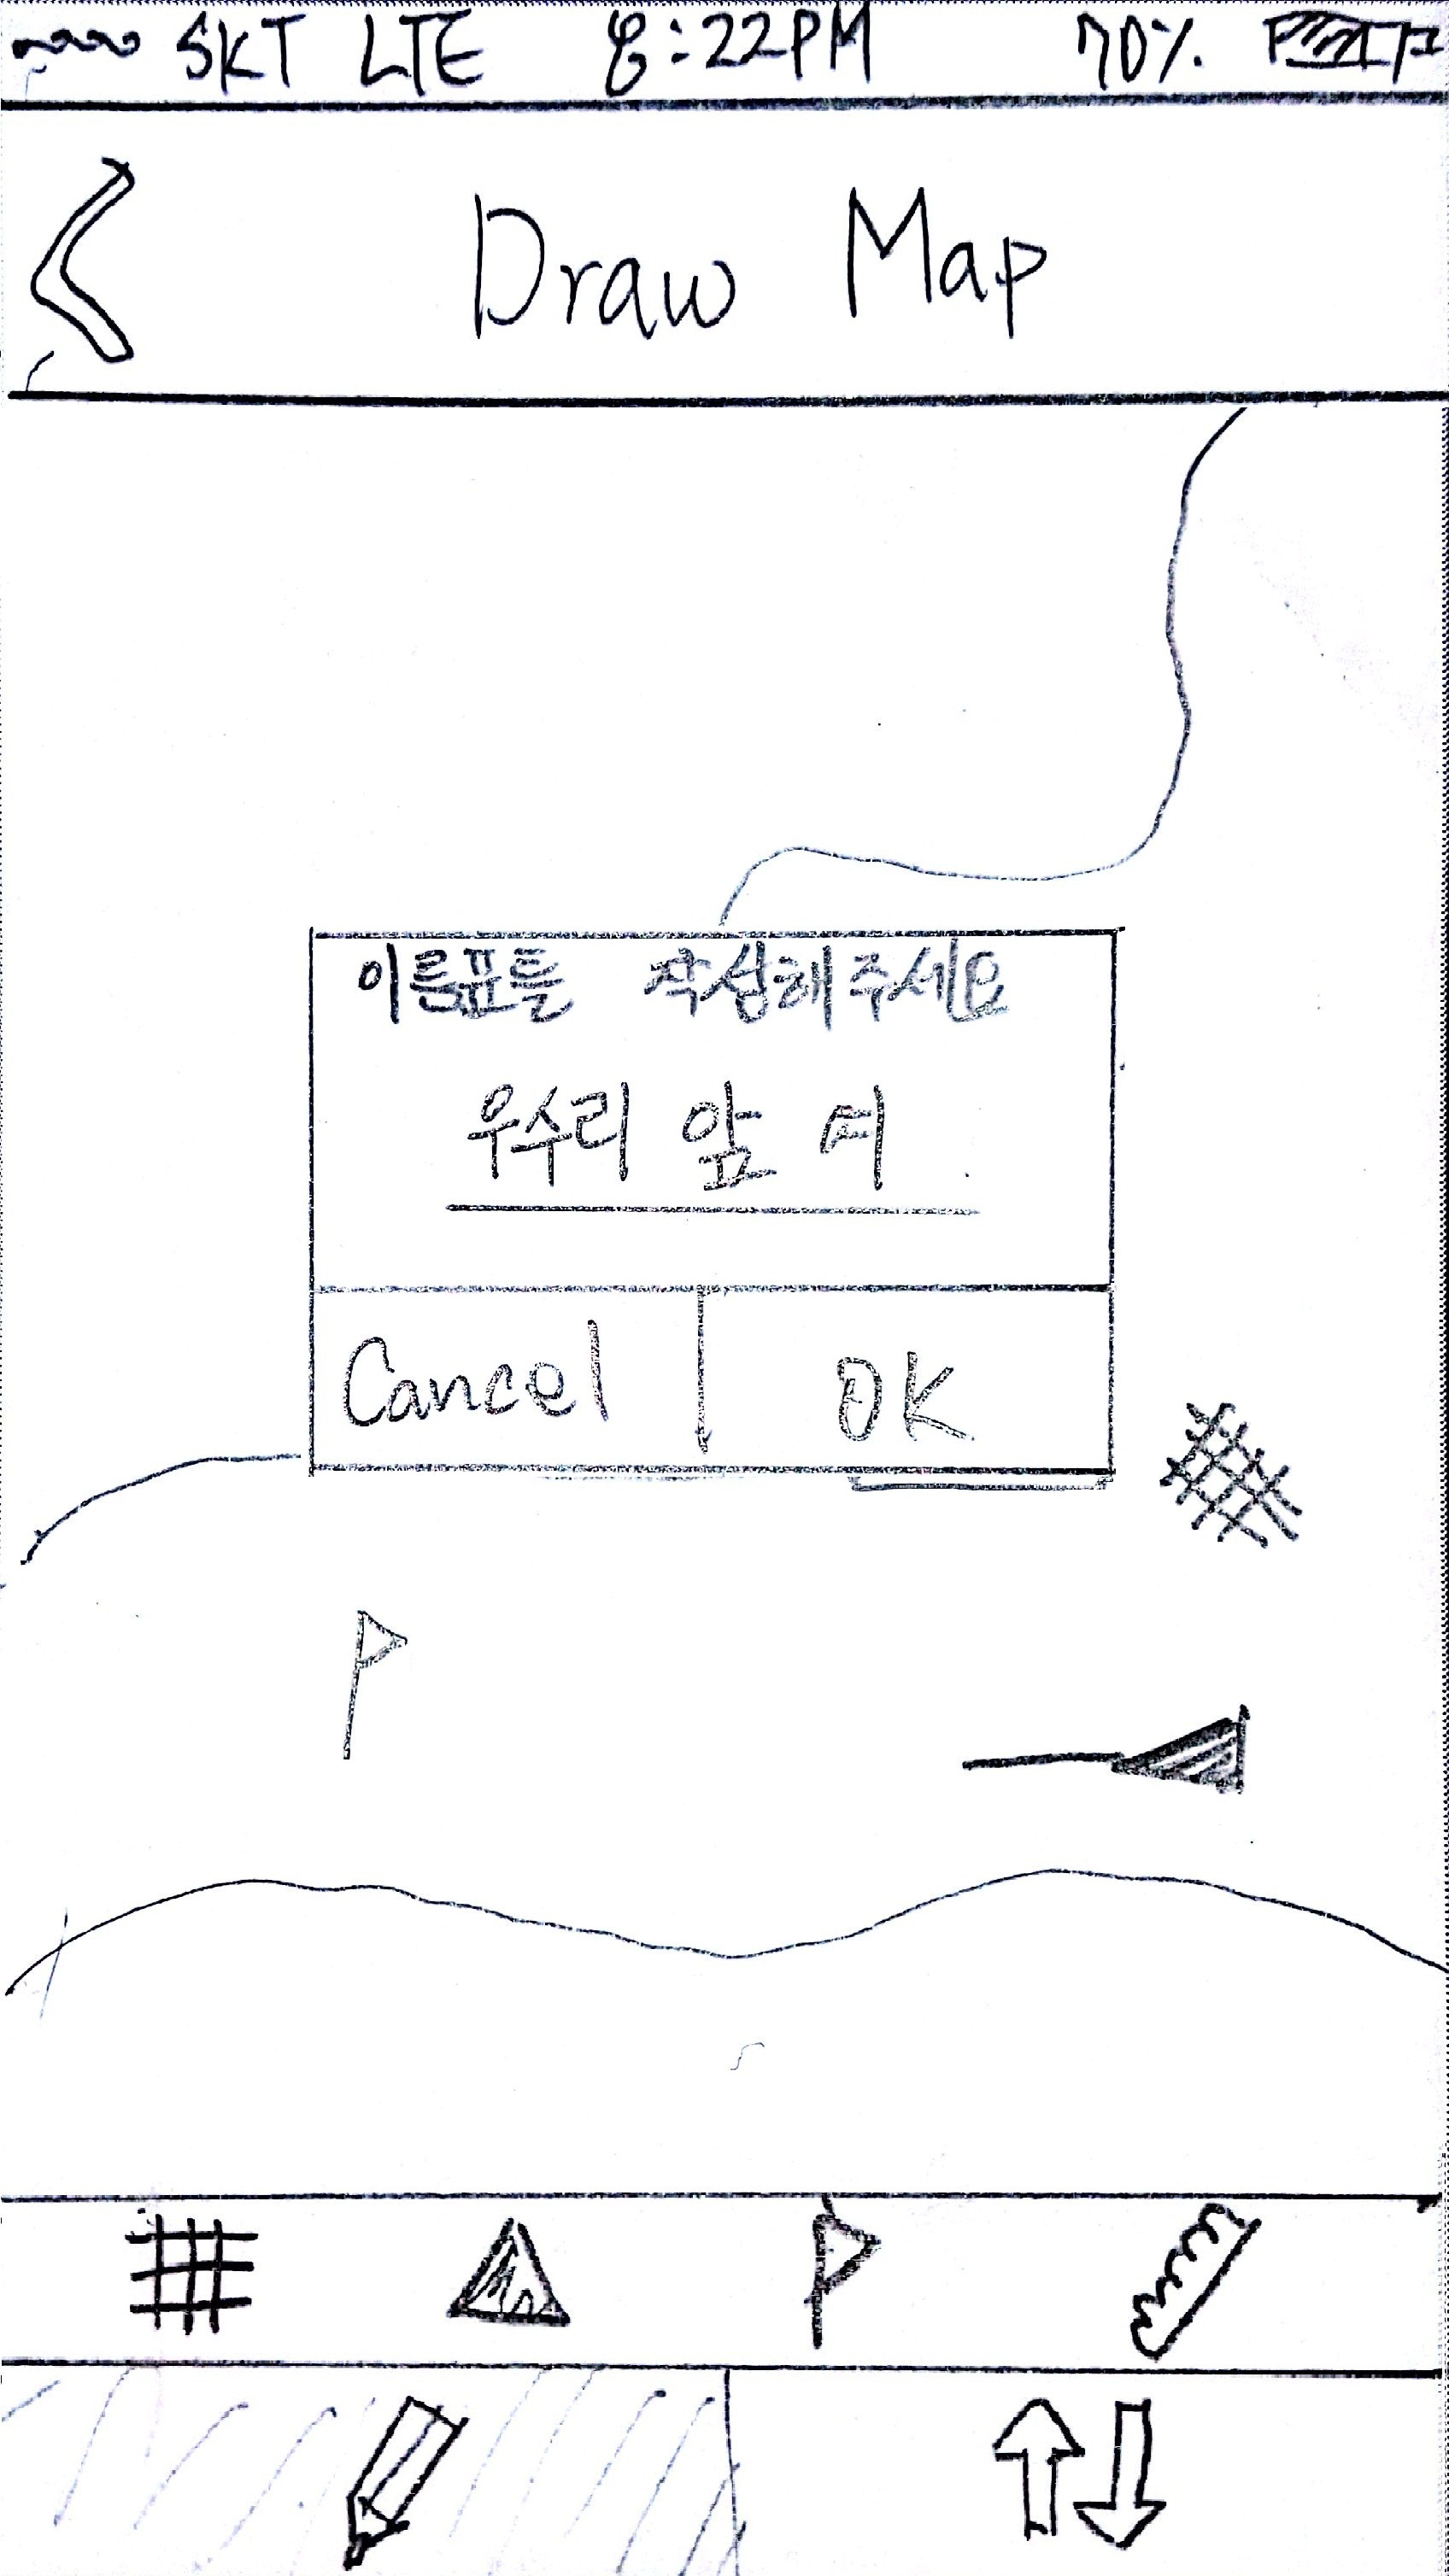 SKT LTE 8:22PM 70%
Draw Map
이름표를 작성해주세요
우수리 앞 터
Cancel OK